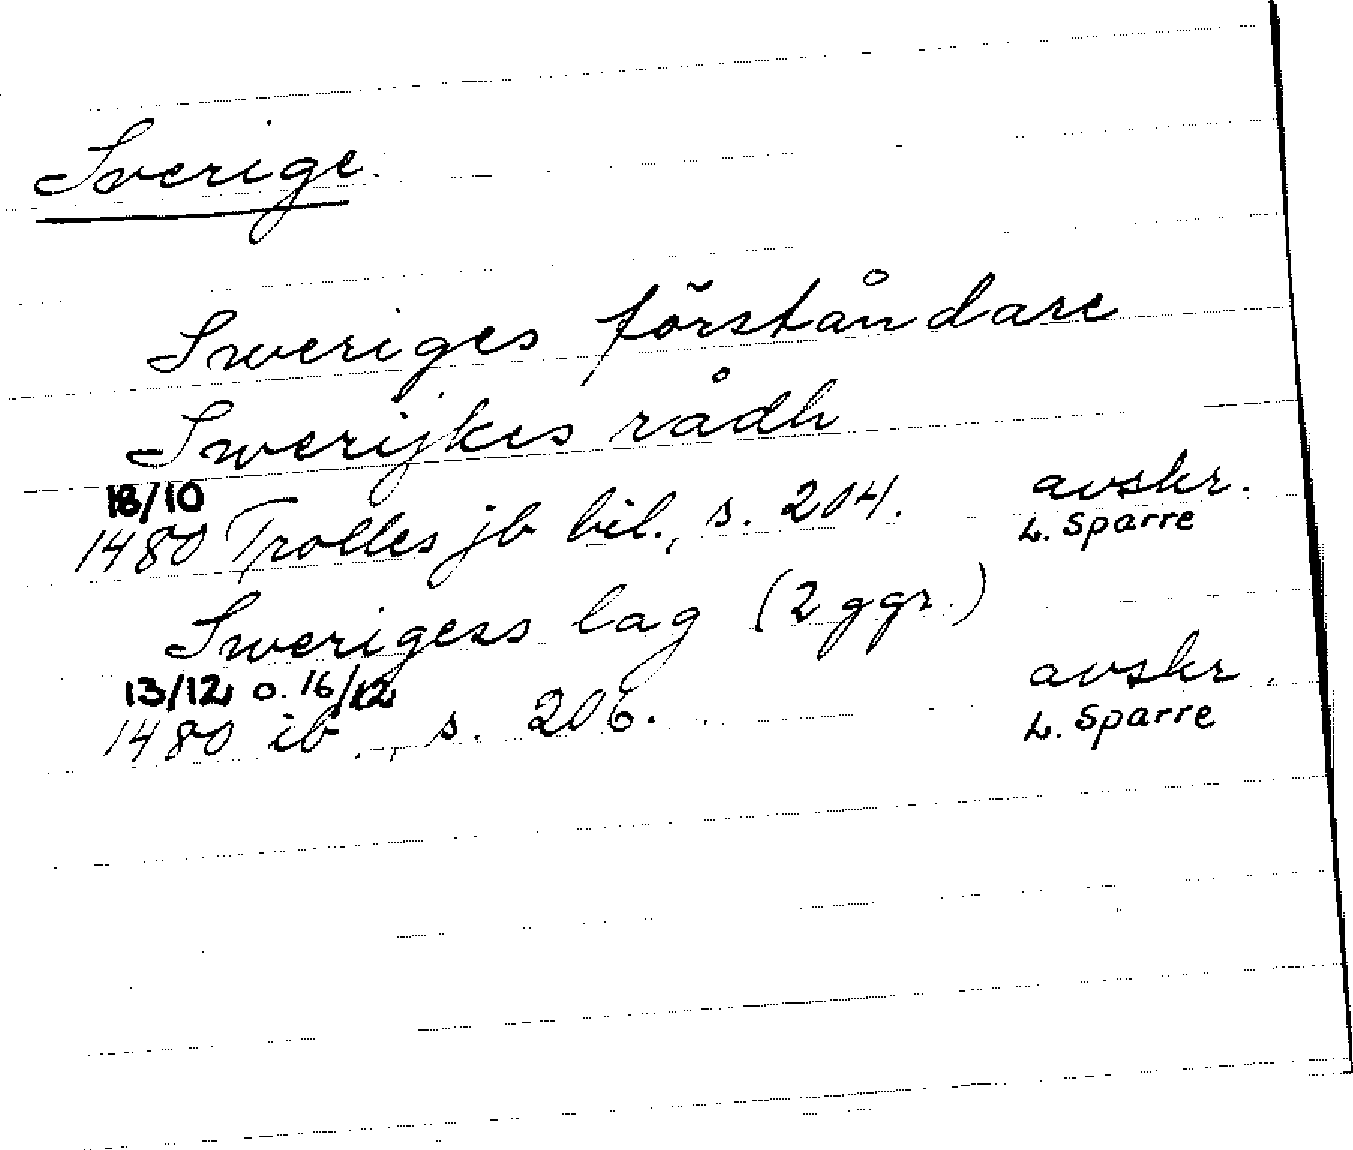 Sverige.
Sweriges förståndare
Swerijkes rådh
18/10
1480 Trolles jb bil., s. 204. avskr.
L. Sparre
Swerigess lag (2 ggr.)
13/12 o. 16/12 avskr.
1480 ib., s. 206. L. Sparre